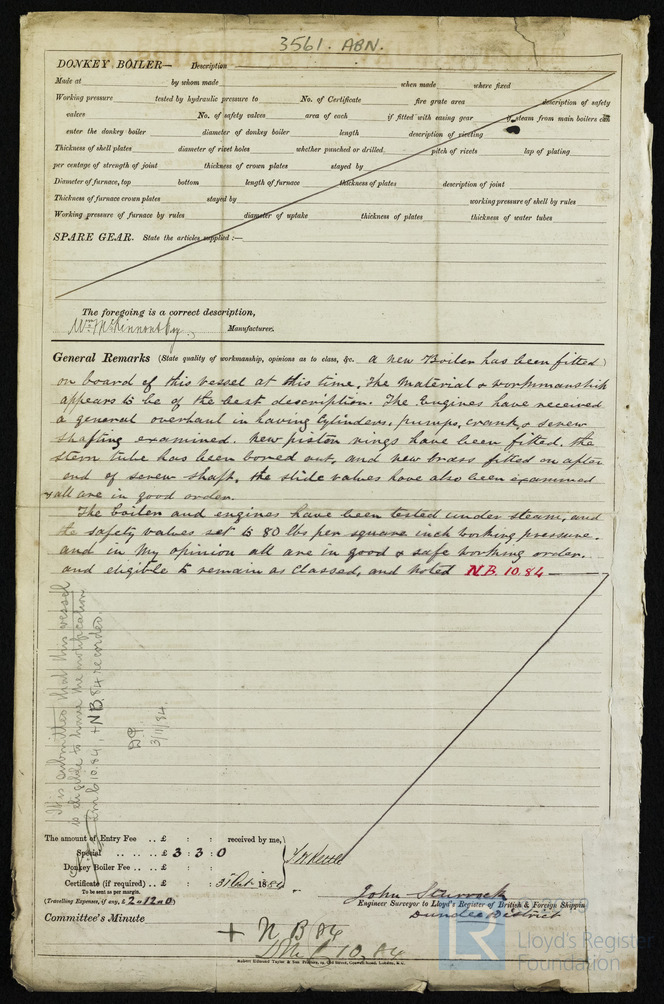 3561. ABN.
DONKEY BOILER— Description
Made at by whom made when made where fixed
Working pressure tested by hydraulic pressure to No. of Certificate fire grate area description of safety
valves No. of safety valves area of each if fitted with easing gear if steam from main boilers can
enter the donkey boiler diameter of donkey boiler length description of riveting
Thickness of shell plates diameter of rivet holes whether punched or drilled pitch of rivets lap of plating
per centage of strength of joint thickness of crown plates stayed by
Diameter of furnace, top bottom length of furnace thickness of plates description of joint
Thickness of furnace crown plates stayed by working pressure of shell by rules
Working pressure of furnace by rules diameter of uptake thickness of plates thickness of water tubes
SPARE GEAR. State the articles supplied :—
The foregoing is a correct description,
Wm McKinnon & Cy. Manufacturer.
General Remarks (State quality of workmanship, opinions as to class, &c. A new Boiler has been fitted
on board of this vessel at this time. The material & workmanship
appears to be of the best description. The Engines have received
a general overhaul in having Cylinders, pumps, crank, & screw
shafting examined. New piston rings have been fitted, the
stern tube has been bored out, and new brass fitted on after
end of screw shaft, the slide valves have also been examined
& all are in good order.
The boiler and engines have been tested under steam, and
the safety valves set to 80 lbs per square inch working pressure.
and in my opinion all are in good & safe working order.
and eligible to remain as classed, and noted N.B. 10.84
It is submitted that this vessel
is eligible to have the notification
LMC 10.84, + NB. 84 recorded.
3/11/84.
The amount of Entry Fee .. £ : : received by me,
Special .. .. .. £ 3 : 3 : 0
Donkey Boiler Fee .. .. £ : :
Certificate (if required) .. £ : : 31 Oct 1884
To be sent as per margin.
(Travelling Expenses, if any, £ 2 " 12 " 0)
John Sturrock
Engineer Surveyor to Lloyd's Register of British & Foreign Shipping
Dundee District
Committee's Minute
+ N B 84
LMC 10.84
Robert Edmund Taylor & Son Printers, 19, Old Street, Goswell Road, London, E.C.
LR
Lloyd's Register
Foundation